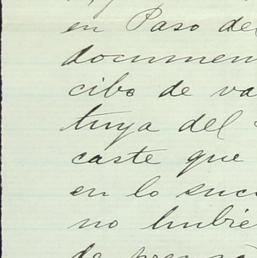 en Paso del
documen
cibo de va
tuya del
caste que
en lo suce
no hubie